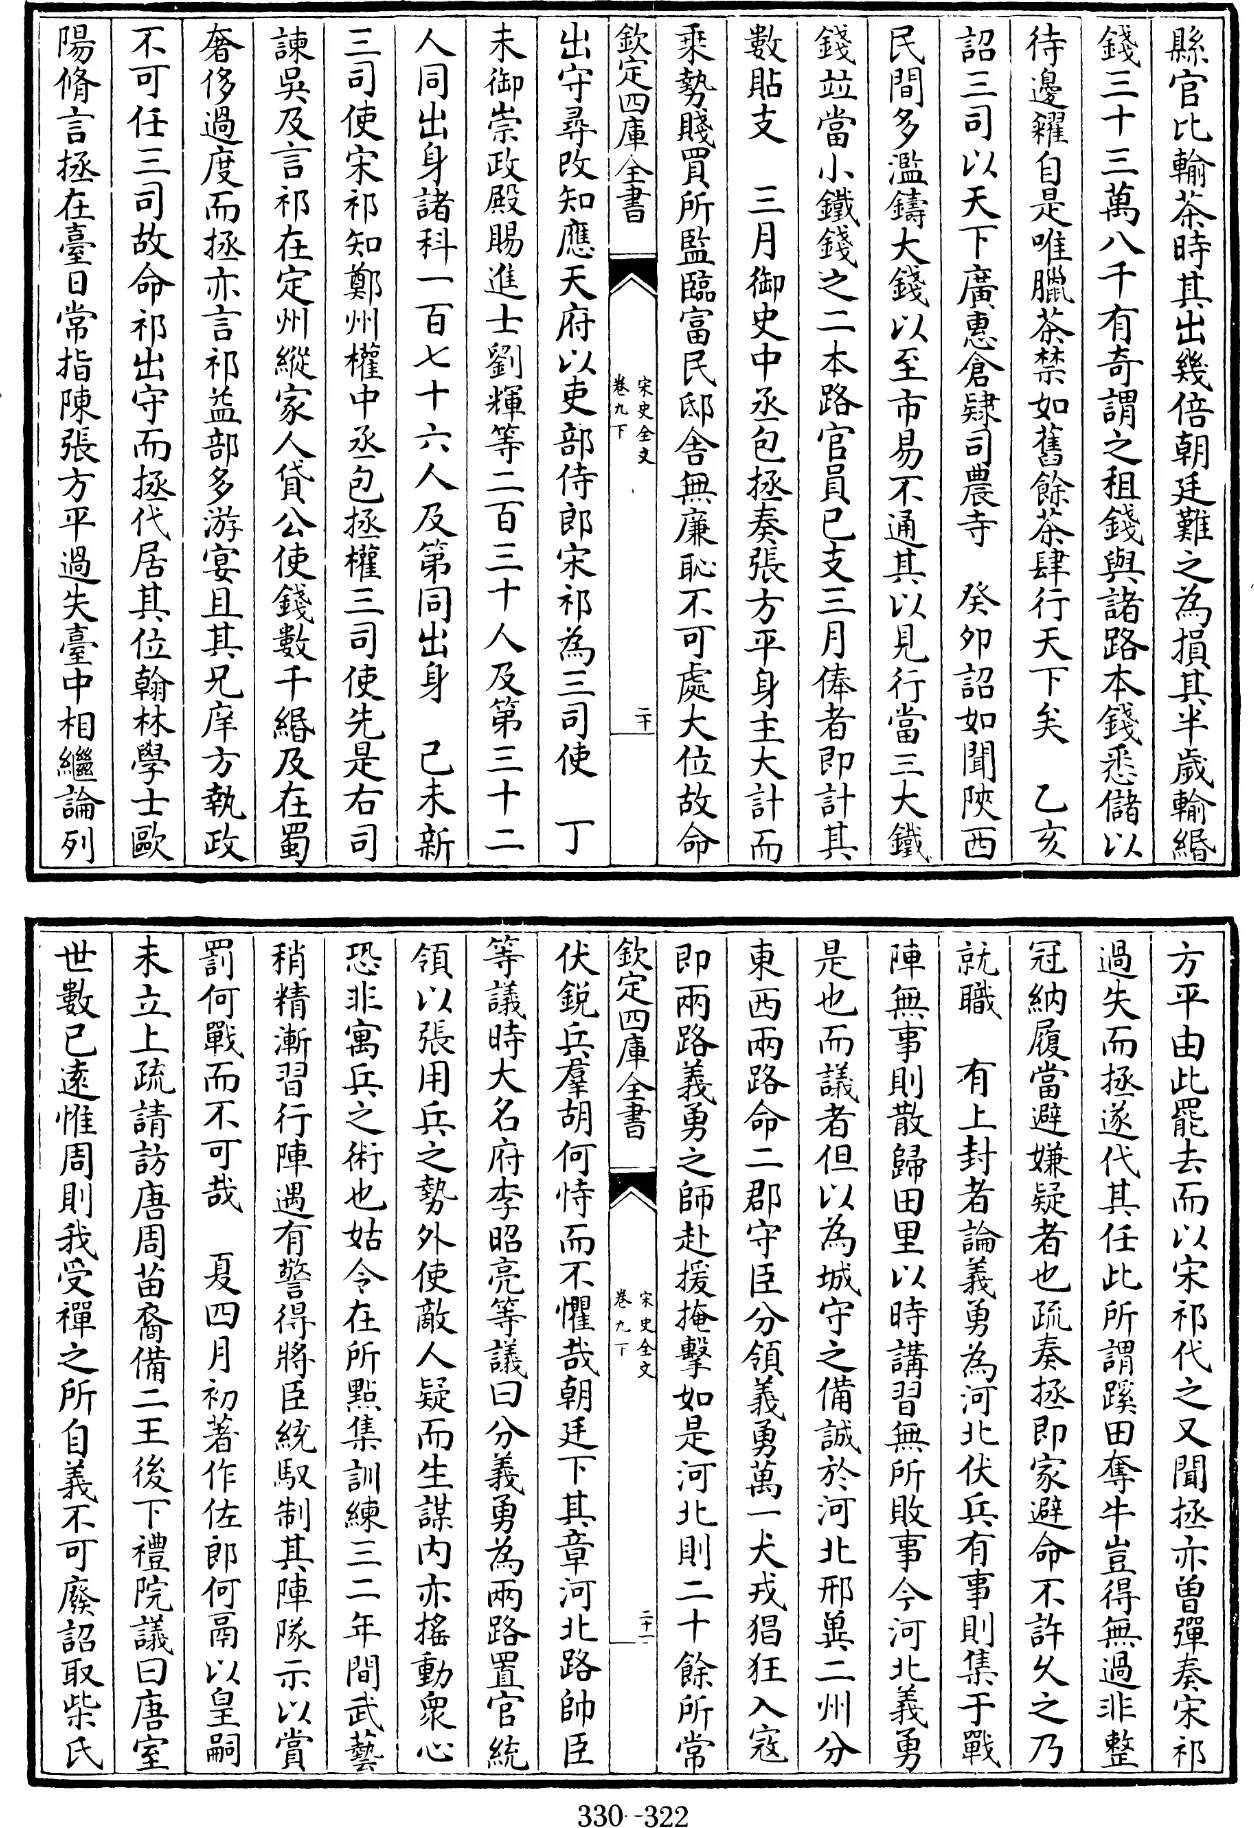 縣官比輸茶時其出幾倍朝廷難之為損其半歲輸緡
錢三十三萬八千有奇謂之租錢與諸路本錢悉儲以
待邊糴自是唯臘茶禁如舊餘茶肆行天下矣　乙亥
詔三司以天下廣惠倉隸司農寺　癸夘詔如聞陜西
民間多濫鑄大錢以至市易不通其以見行當三大鐵
錢並當小鐵錢之二本路官員已支三月俸者即計其
數貼支　三月御史中丞包拯奏張方平身主大計而
乘勢賤買所監臨富民邸舍無廉恥不可處大位故命
欽定四庫全書
宋史全文
卷九下
二十
出守尋改知應天府以吏部侍郎宋祁為三司使　丁
未御崇政殿賜進士劉輝等二百三十人及第三十二
人同出身諸科一百七十六人及第同出身　己未新
三司使宋祁知鄭州權中丞包拯權三司使先是右司
諫吳及言祁在定州縱家人貸公使錢數千緡及在蜀
奢侈過度而拯亦言祁益部多游宴且其兄庠方執政
不可任三司故命祁出守而拯代居其位翰林學士歐
陽脩言拯在臺日常指陳張方平過失臺中相繼論列
方平由此罷去而以宋祁代之又聞拯亦曾彈奏宋祁
過失而拯遂代其任此所謂蹊田奪牛豈得無過非整
冠納履當避嫌疑者也疏奏拯即家避命不許久之乃
就職　有上封者論義勇為河北伏兵有事則集于戰
陣無事則散歸田里以時講習無所敗事今河北義勇
是也而議者但以為城守之備誠於河北邢冀二州分
東西兩路命二郡守臣分領義勇萬一犬戎猖狂入寇
即兩路義勇之師赴援掩擊如是河北則二十餘所常
欽定四庫全書
宋史全文
卷九下
二十一
伏鋭兵羣胡何恃而不懼哉朝廷下其章河北路帥臣
等議時大名府李昭亮等議曰分義勇為兩路置官統
領以張用兵之勢外使敵人疑而生謀内亦搖動衆心
恐非寓兵之術也姑令在所點集訓練三二年間武藝
稍精漸習行陣遇有警得將臣統馭制其陣隊示以賞
罰何戰而不可哉　夏四月初著作佐郎何鬲以皇嗣
未立上疏請訪唐周苗裔備二王後下禮院議曰唐室
世數已遠惟周則我受禪之所自義不可廢詔取柴氏
330--322